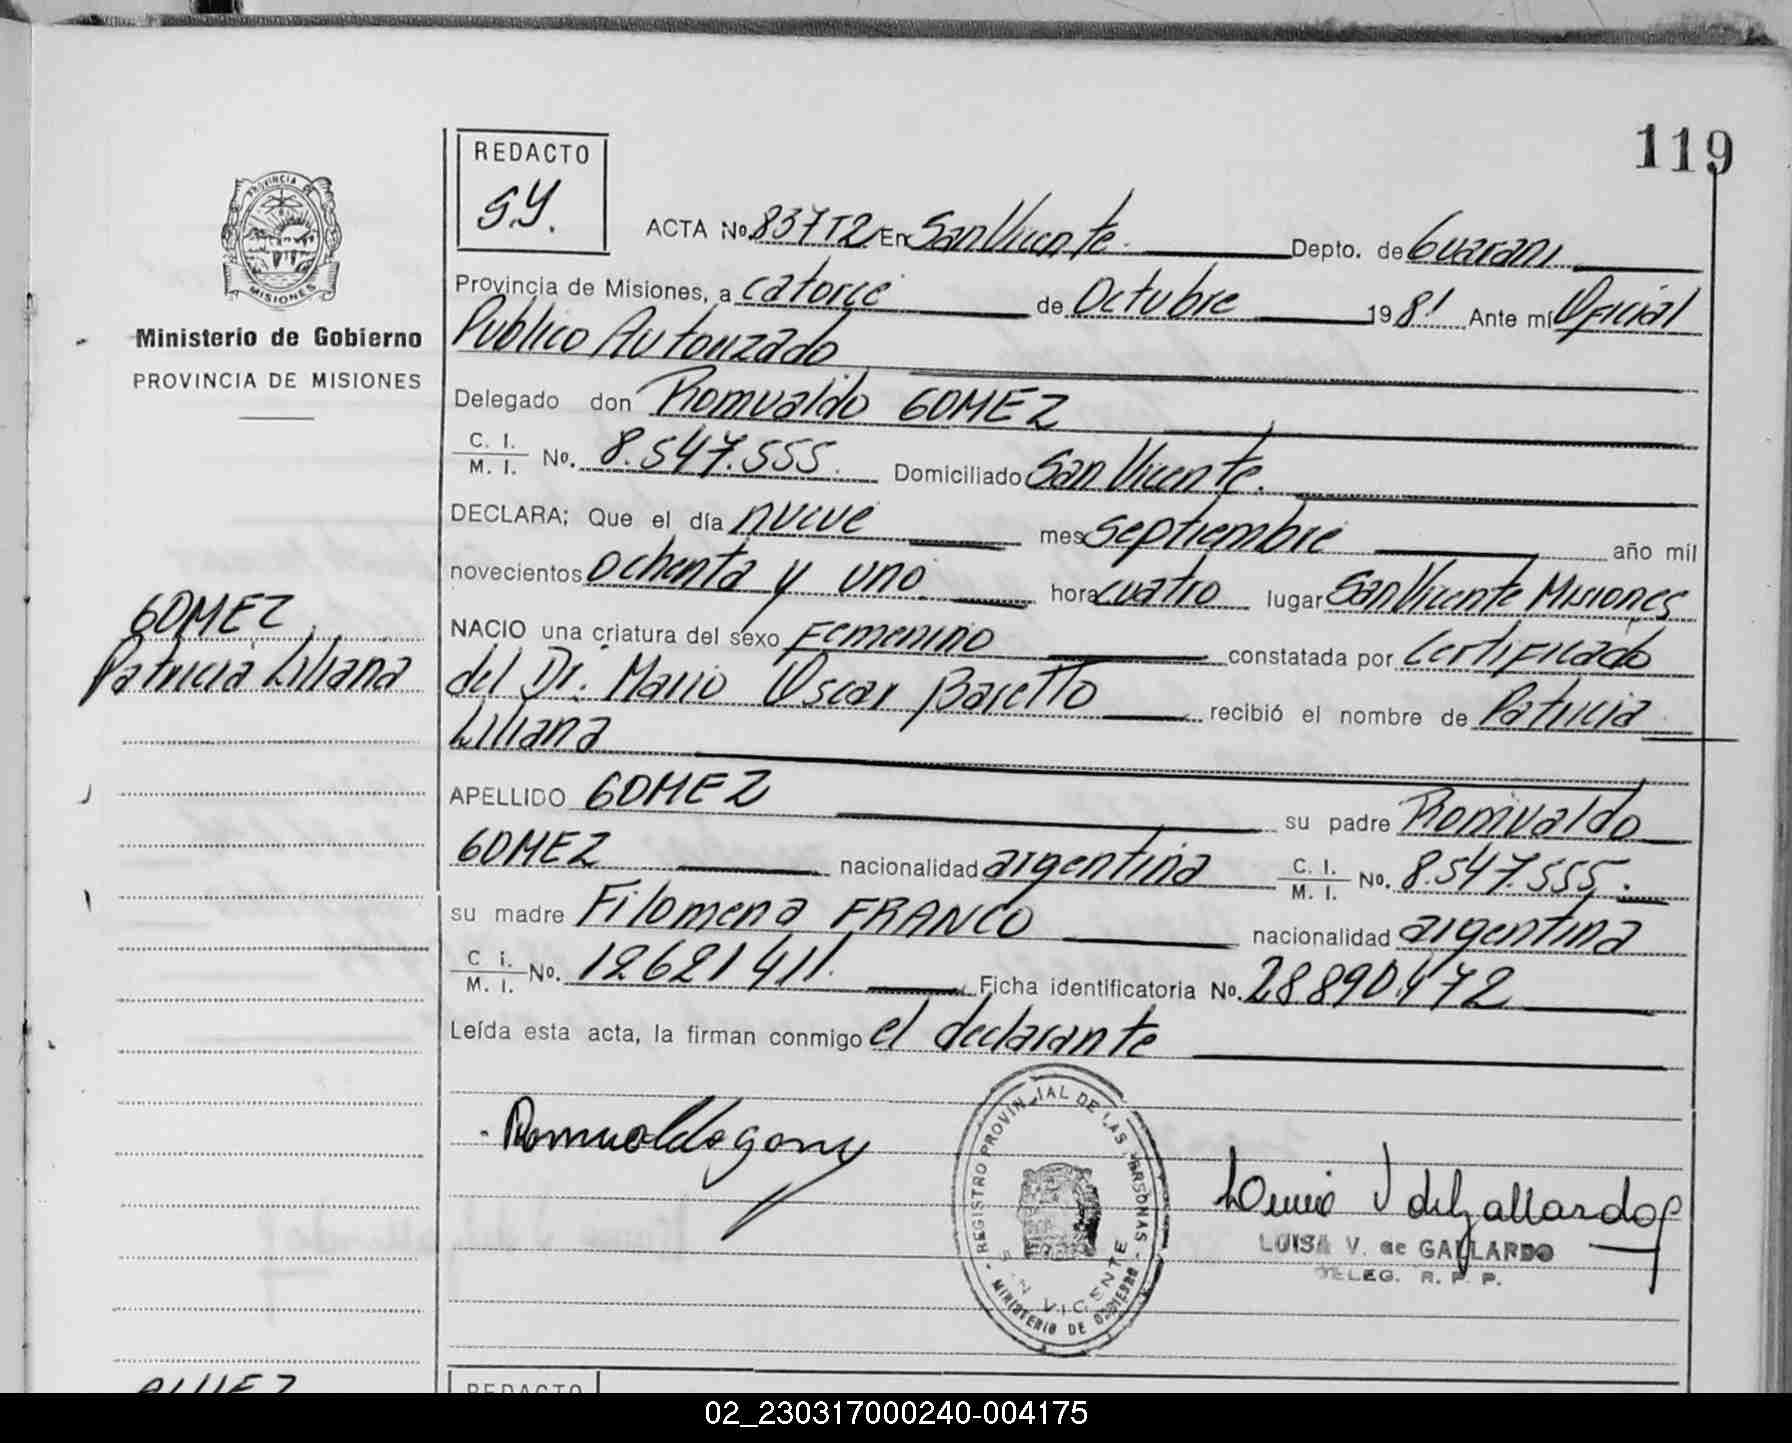 119
REDACTO
S.Y.
PROVINCIA DE
MISIONES
Ministerio de Gobierno
PROVINCIA DE MISIONES
ACTA No. 837T2 En San Vicente. Depto. de Guarani
Provincia de Misiones, a catorce de Octubre 1981 Ante mí Oficial
Publico Autorizado
Delegado don Romualdo GOMEZ
C. I. / M. I. No. 8.547.555. Domiciliado San Vicente.
DECLARA; Que el día nueve mes septiembre año mil
novecientos ochenta y uno. hora cuatro lugar San Vicente Misiones
GOMEZ
Patricia Liliana
NACIO una criatura del sexo Femenino constatada por Certificado
del Dr. Mario Oscar Baretto recibió el nombre de Patricia
Liliana
APELLIDO GOMEZ su padre Romualdo
GOMEZ nacionalidad argentina C. I. / M. I. No. 8.547.555.
su madre Filomena FRANCO nacionalidad argentina
C i. / M. I. No. 12621411. Ficha identificatoria No. 28890.472
Leída esta acta, la firman conmigo el declarante
Romualdo gomez
REGISTRO PROVINCIAL DE LAS PERSONAS
SAN VICENTE
MINISTERIO DE GOBIERNO
LUISA V. de GALLARDO
DELEG. R. P. P.
REDACTO
02_230317000240-004175